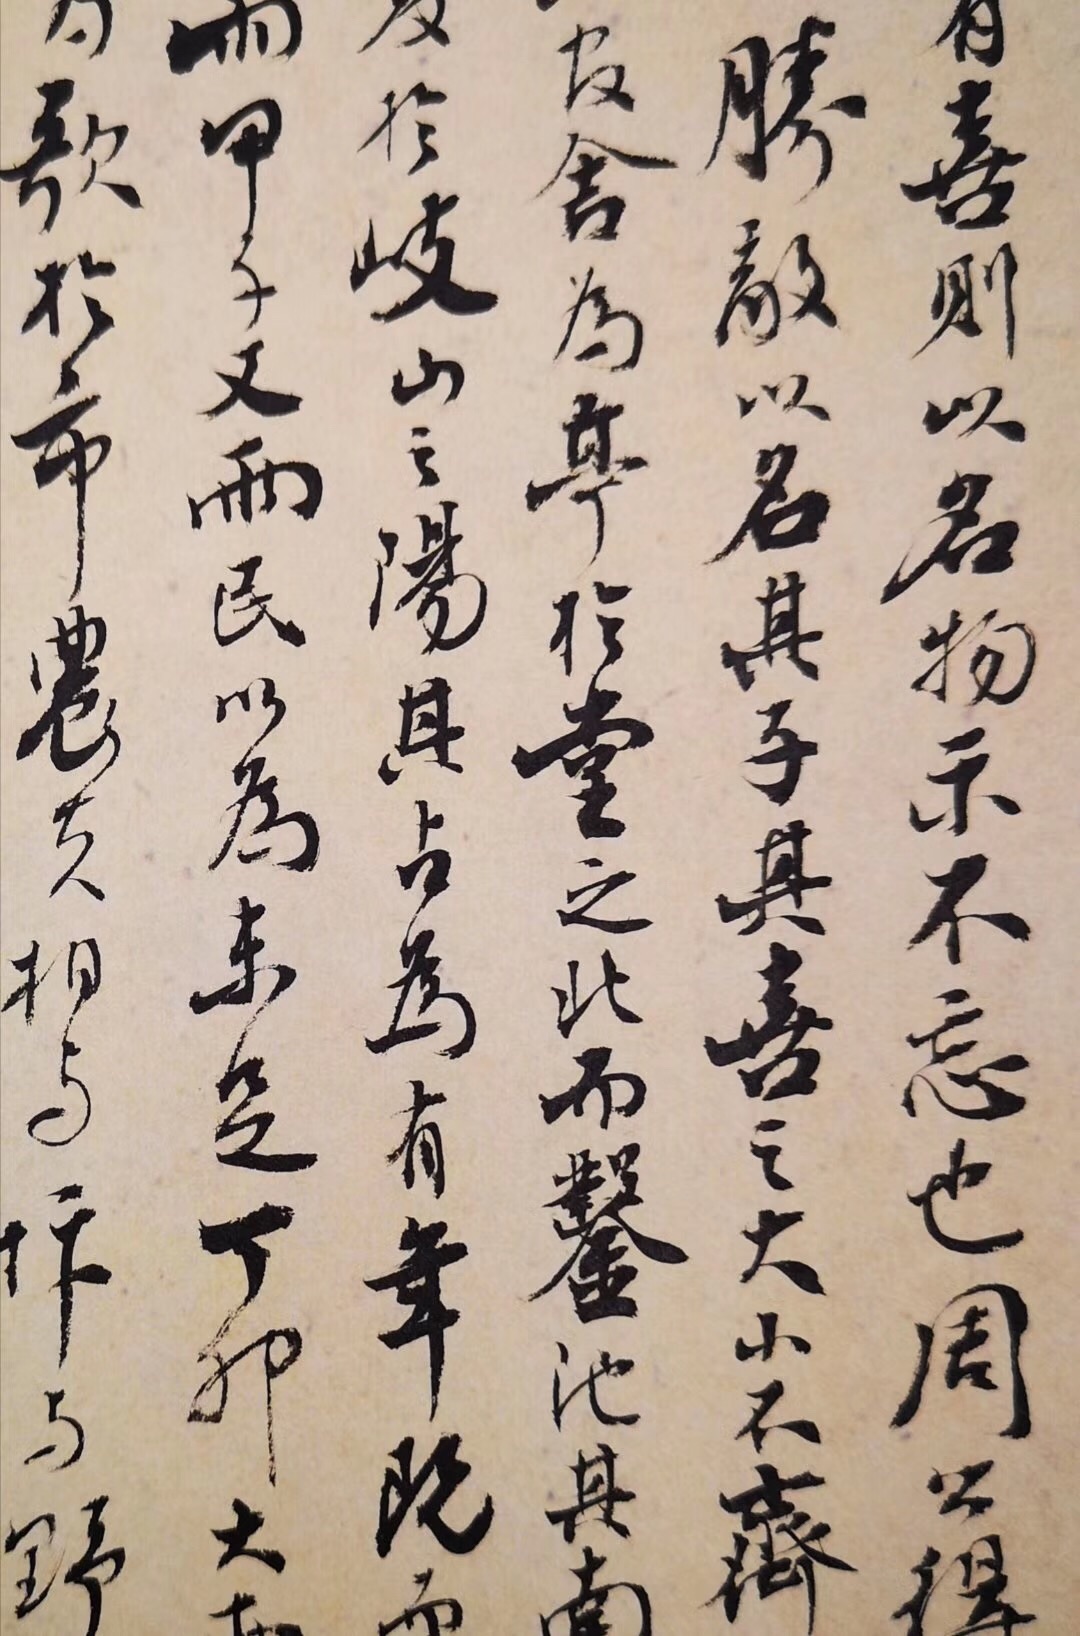 有喜則以名物示不忘也周公得
勝敵以名其子其喜之大小不齊
官舍為亭於堂之北而鑿池其南
於岐山之陽其占為有年既而
雨甲子又雨民以為未足丁卯大
歌於市農夫相與忭於野